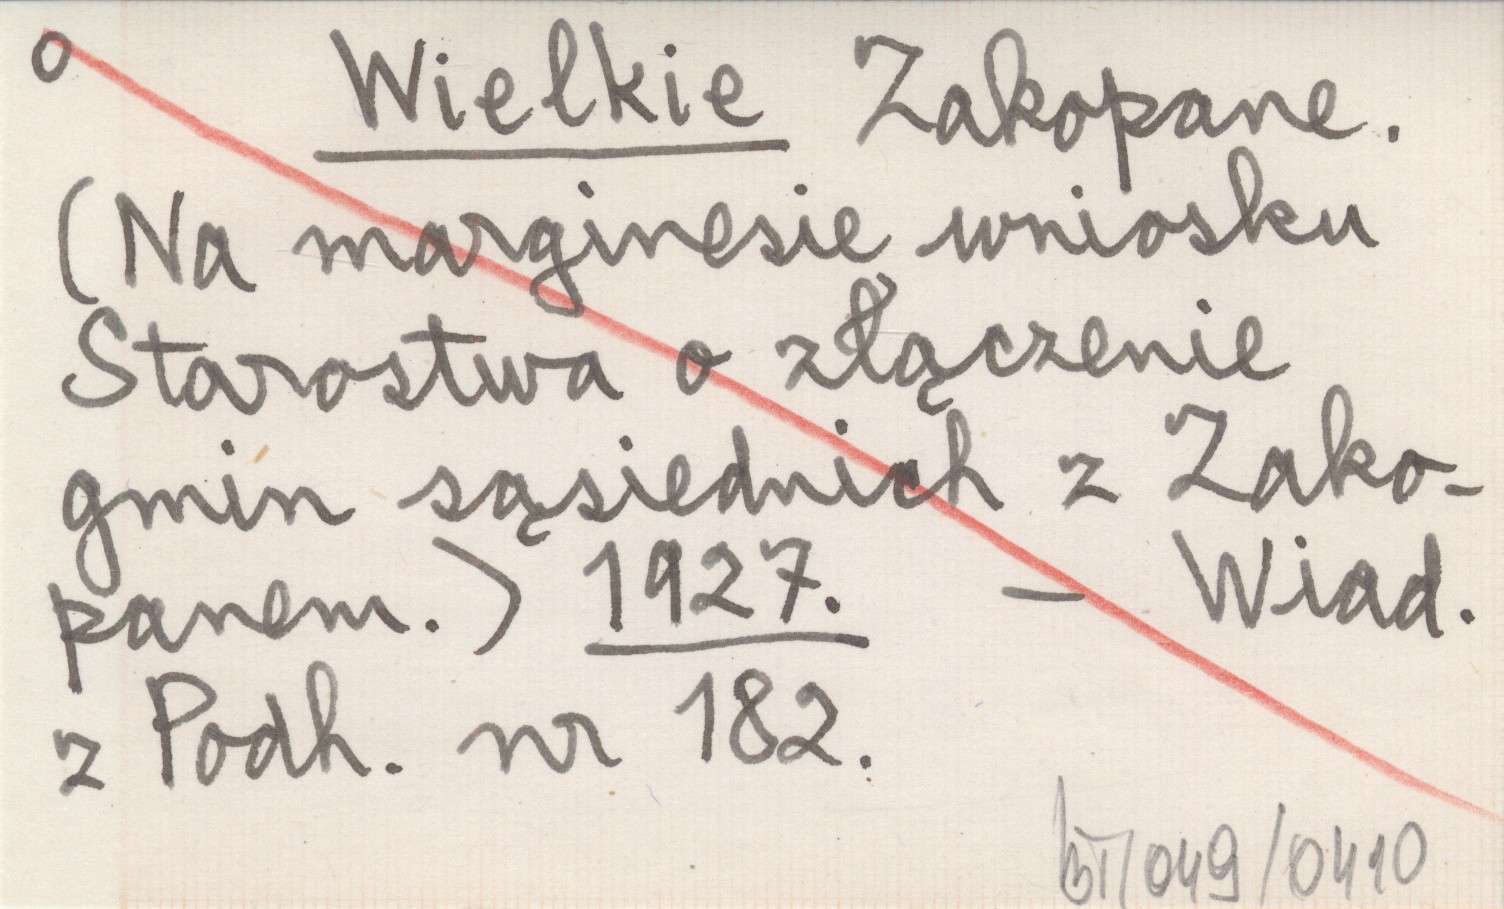 o Wielkie Zakopane.
(Na marginesie wniosku
Starostwa o złączenie
gmin sąsiednich z Zako-
panem.) 1927. – Wiad.
z Podh. nr 182.
/049/0410